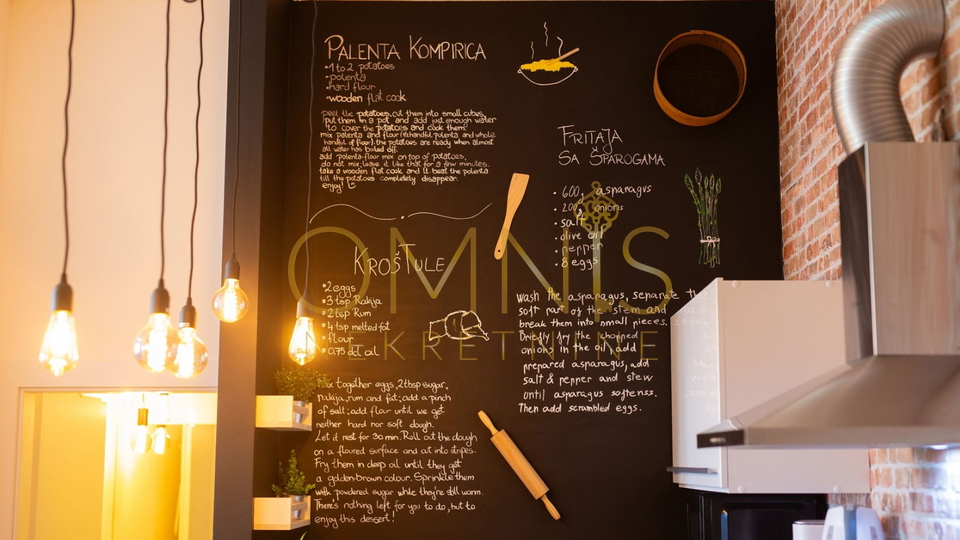 PALENTA KOMPIRICA
•1 to 2 potatoes
•polenta
•hard flour
•wooden flat cook
peel the potatoes, cut them into small cubes,
put them in a pot and add just enough water
to cover the potatoes and cook them.
mix palenta and flour (1 handful palenta and whole
handful of flour). the potatoes are ready when almost
all water has boiled off.
add polenta-flour mix on top of potatoes,
do not mix; leave it like that for a few minutes.
take a wooden flat cook and beat the polenta
till the potatoes completely disappear.
enjoy!
KROŠTULE
•2 eggs
•3 tsp Rakija
•2 tsp Rum
•4 tsp melted fat
•flour
•0,75 del oil
Mix together eggs, 2 tbsp sugar,
rakija, rum and fat; add a pinch
of salt; add flour until we get
neither hard nor soft dough.
Let it rest for 30 min. Roll out the dough
on a floured surface and cut into stripes.
Fry them in deep oil until they get
a golden-brown colour. Sprinkle them
with powdered sugar while they're still warm.
There's nothing left for you to do, but to
enjoy this dessert!
FRITAJA
SA ŠPAROGAMA
• 600g asparagus
• 200g onions
• salt
• olive oil
• pepper
• 8 eggs
Wash the asparagus, separate the
soft part of the stem and
break them into small pieces.
Briefly fry the chopped
onions in the oil, add
prepared asparagus, add
salt & pepper and stew
until asparagus softens.
Then add scrambled eggs.
OMNIS
NEKRETNINE